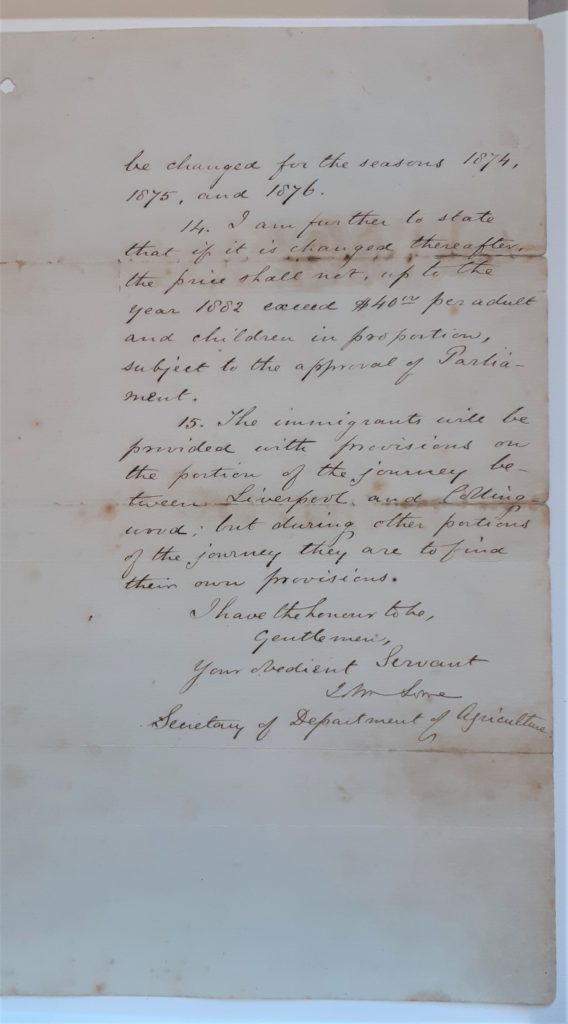 be changed for the seasons 1874,
1875, and 1876.
14. I am further to state
that if it is changed thereafter,
the price shall not, up to the
year 1882 exceed $40.00 per adult
and children in proportion,
subject to the approval of Parlia-
ment.
15. The immigrants will be
provided with provisions on
the portion of the journey be-
tween Liverpool and Colling-
wood; but during other portions
of the journey they are to find
their own provisions.
I have the honour to be,
Gentlemen,
Your obedient Servant
Secretary of Department of Agriculture.